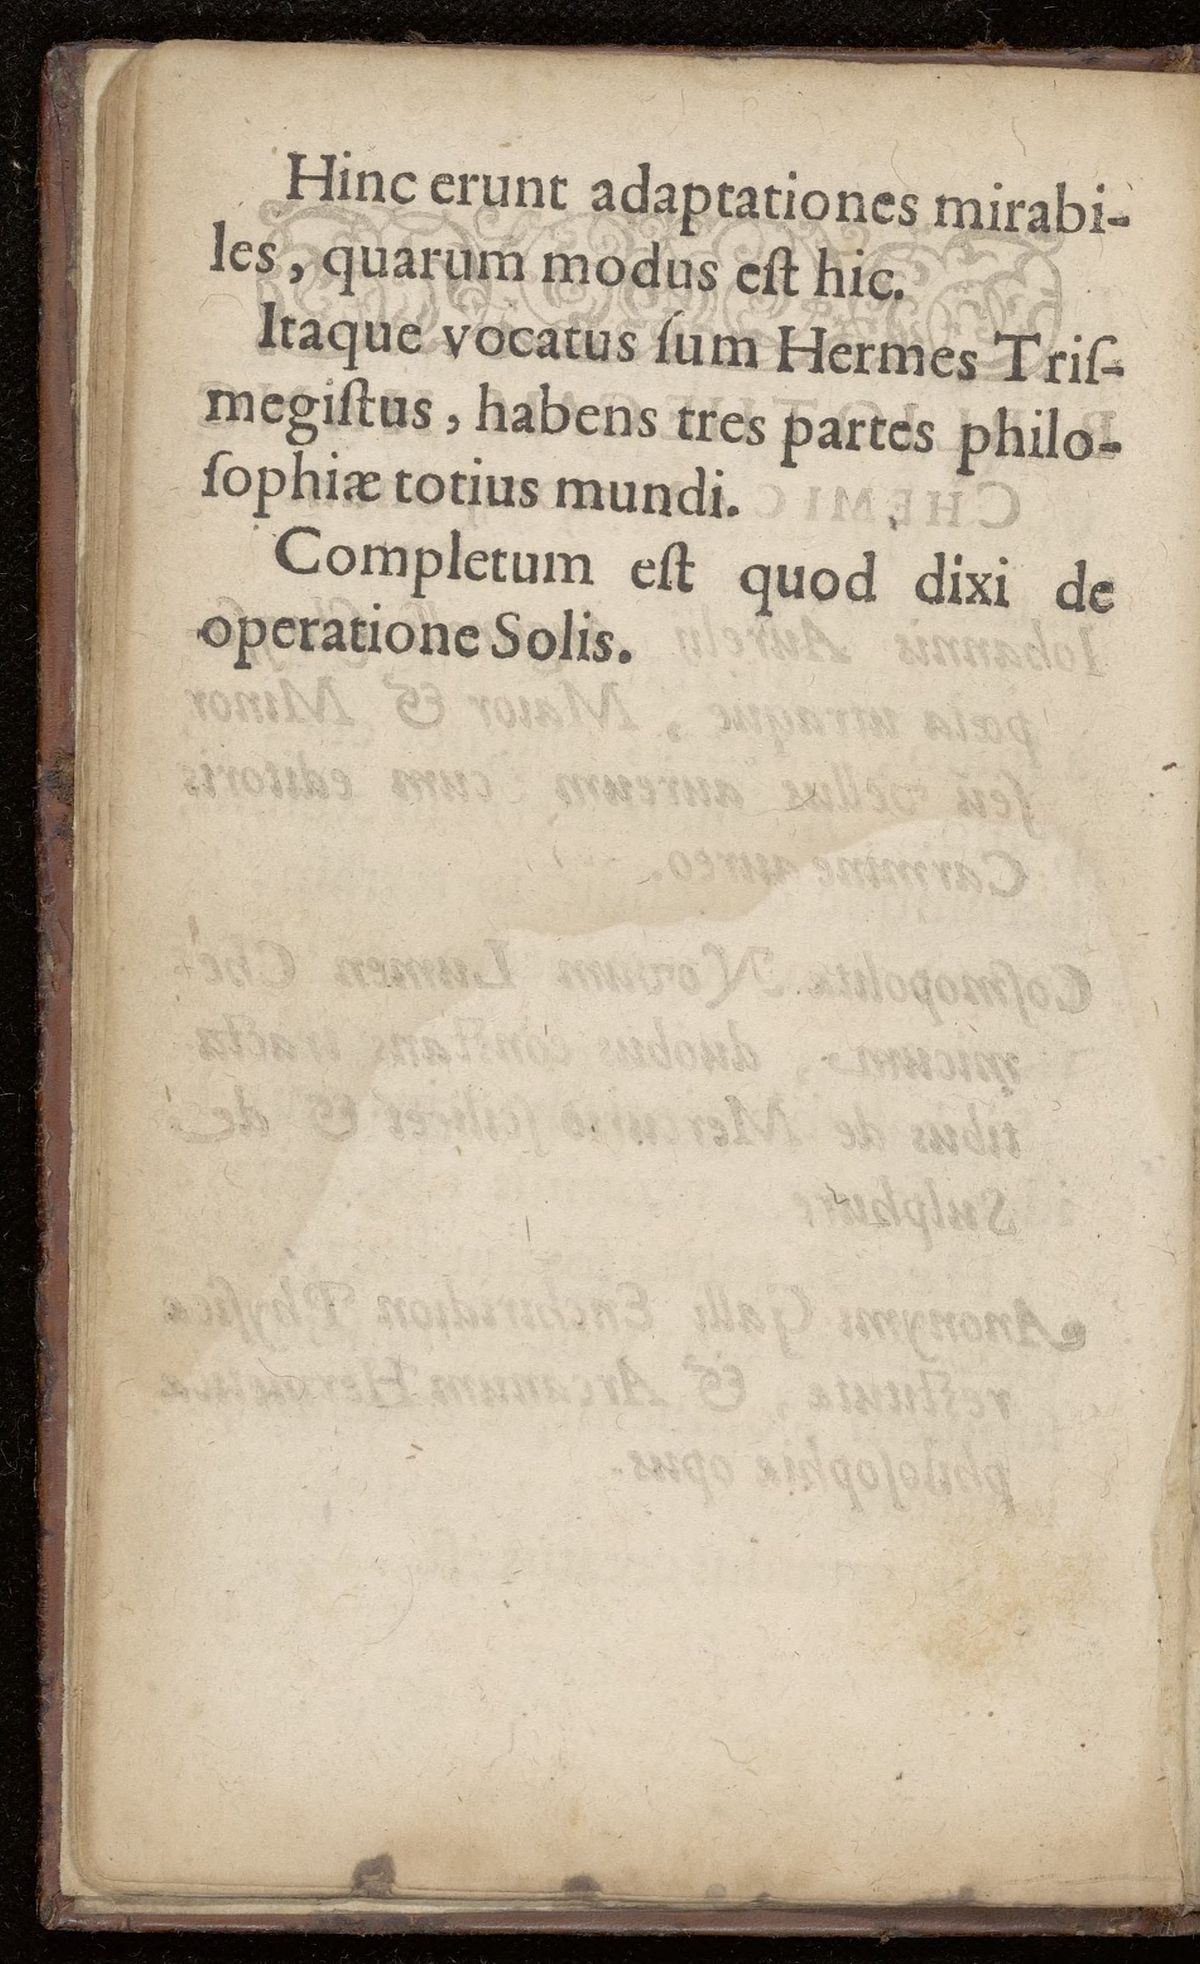 Hinc erunt adaptationes mirabi-
les, quarum modus eſt hic.
Itaque vocatus ſum Hermes Triſ-
megiſtus, habens tres partes philo-
ſophiæ totius mundi.
Completum eſt quod dixi de
operatione Solis.